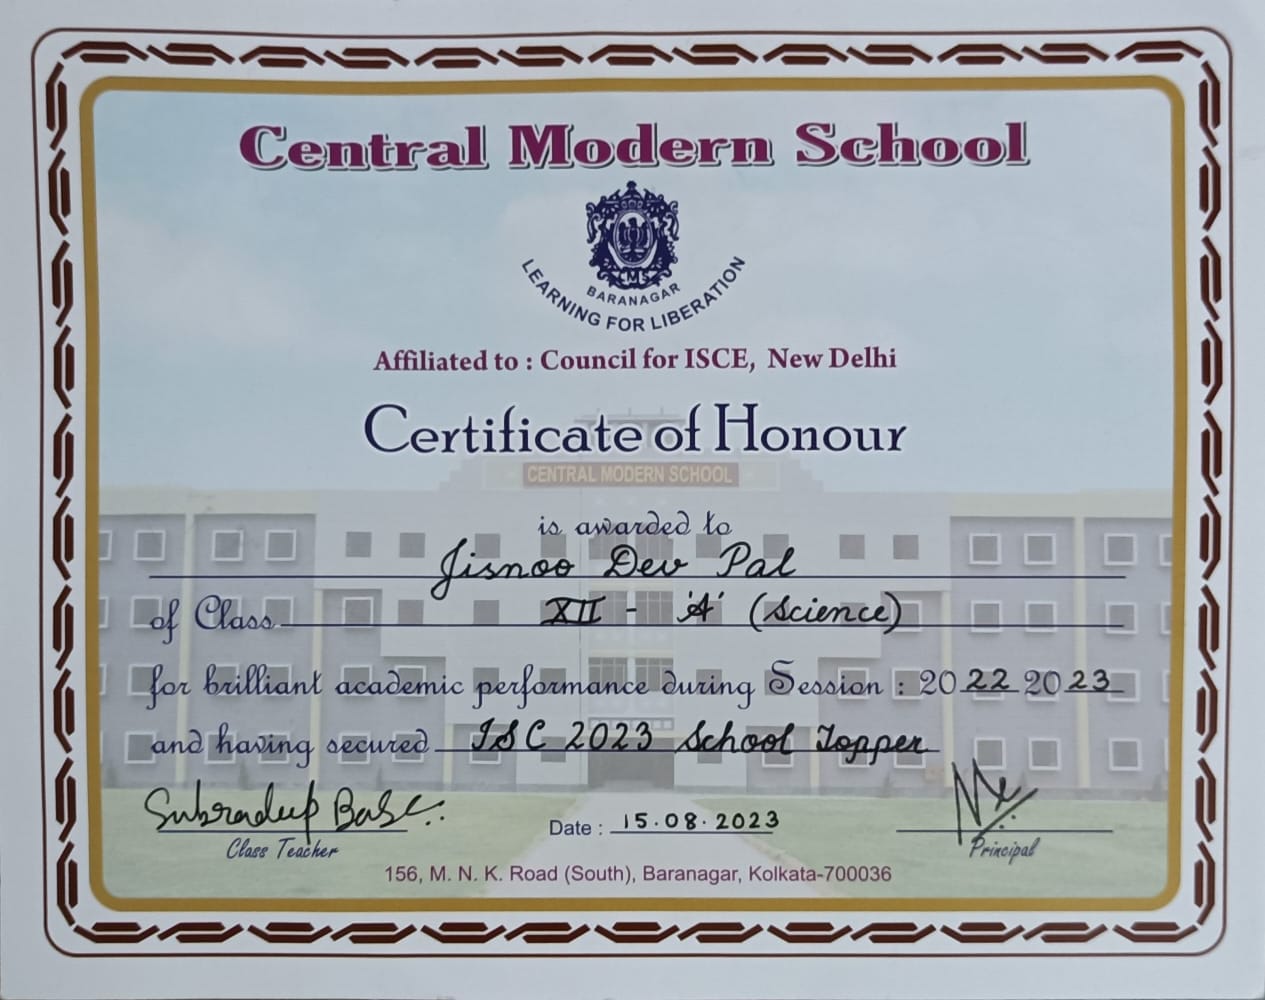 Central Modern School
CMS
BARANAGAR
LEARNING FOR LIBERATION
Affiliated to : Council for ISCE, New Delhi
Certificate of Honour
CENTRAL MODERN SCHOOL
is awarded to
Jisnoo Dev Pal
of Class XII - 'A' (Science)
for brilliant academic performance during Session : 2022 2023
and having secured ISC 2023 School Topper
Subradeep
Class Teacher
Date : 15.08.2023
Principal
156, M. N. K. Road (South), Baranagar, Kolkata-700036